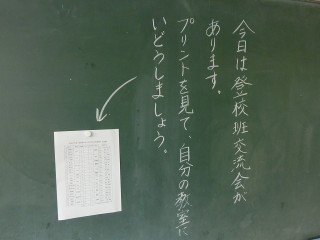 今日は登校班交流会が
あります。
プリントを見て、自分の教室に
いどうしましょう。